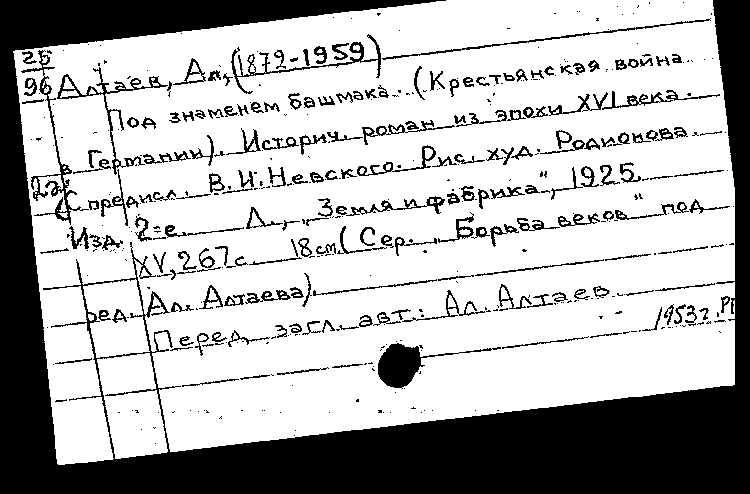 25
96 Алтаев, Ал, (1872-1959)
Под знаменем башмака. (Крестьянская война
в Германии). Историч. роман из эпохи XVI века.
(С предисл. В.И.Невского. Рис. худ. Родионова.
Изд. 2=е. Л., „Земля и фабрика", 1925.
XV, 267 с. 18 см. (Сер. „Борьба веков" под
ред. Ал. Алтаева).
Перед загл. авт.: Ал. Алтаев.
1953 г.